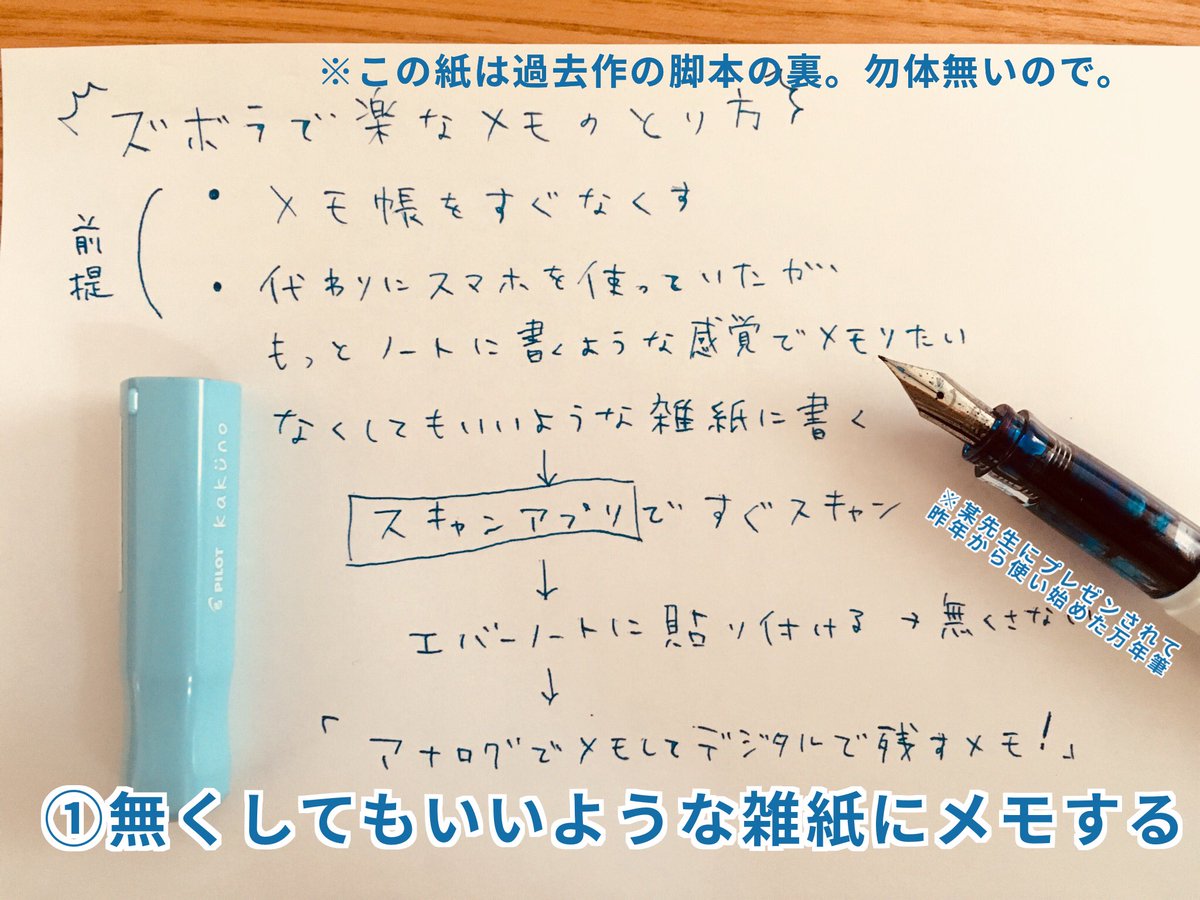 ※この紙は過去作の脚本の裏。勿体無いので。
ズボラで楽なメモのとり方
前提
・メモ帳をすぐなくす
・代わりにスマホを使っていたが
もっとノートに書くような感覚でメモりたい
なくしてもいいような雑紙に書く
↓
スキャンアプリですぐスキャン
↓
エバーノートに貼り付ける→無くさない
↓
「アナログでメモしてデジタルで残すメモ!」
PILOT kaküno
※某先生にプレゼンされて
昨年から使い始めた万年筆
①無くしてもいいような雑紙にメモする